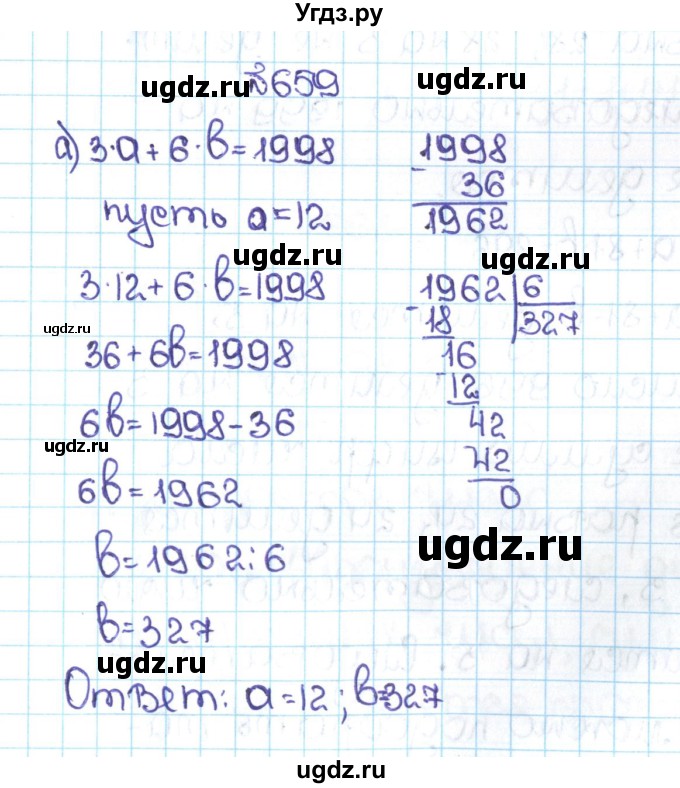 Угдз.ру
№659
ugdz.ru
а) 3·a + 6·b = 1998
пусть a = 12
ugdz.ru
3·12 + 6·b = 1998
ugdz.ru
36 + 6b = 1998
6b = 1998 - 36
ugdz.ru
6b = 1962
b = 1962 : 6
b = 327
ugdz.ru
Ответ: a = 12; b = 327
1998
- 36
1962
ugdz.ru
1962 | 6
- 18 | 327
16
- 12
42
- 42
0
ugdz.ru
ugdz.ru